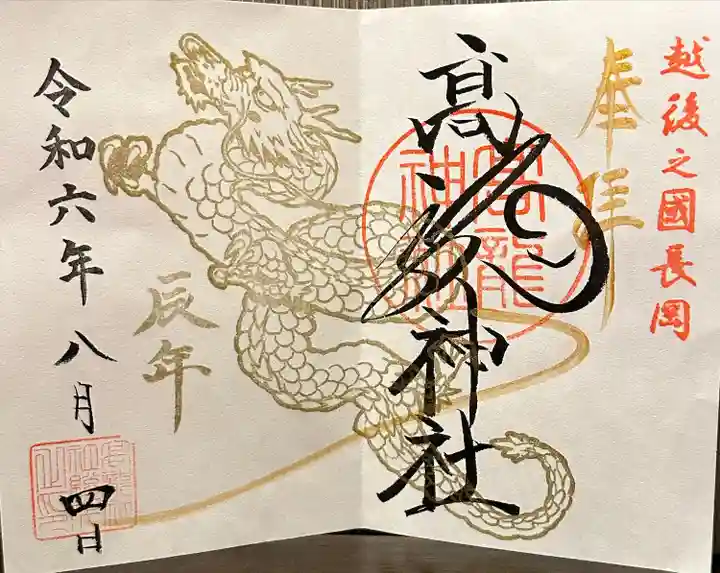 越後之國長岡
奉拝
髙龍神社
高龍神社
辰年
令和六年八月四日